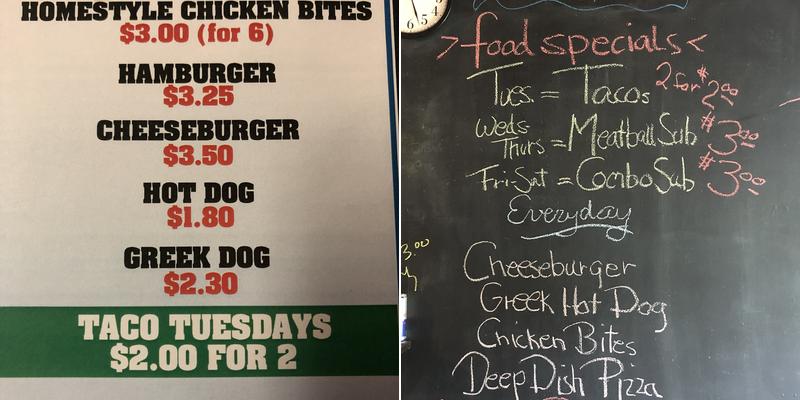 HOMESTYLE CHICKEN BITES
$3.00 (for 6)
HAMBURGER
$3.25
CHEESEBURGER
$3.50
HOT DOG
$1.80
GREEK DOG
$2.30
TACO TUESDAYS
$2.00 FOR 2
6 5 4
>food specials<
Tues = Tacos 2 for $2.00
Weds
Thurs = Meatball Sub $3.00
Fri-Sat = Combo Sub $3.00
Everyday
3.00
Cheeseburger
Greek Hot Dog
Chicken Bites
Deep Dish Pizza